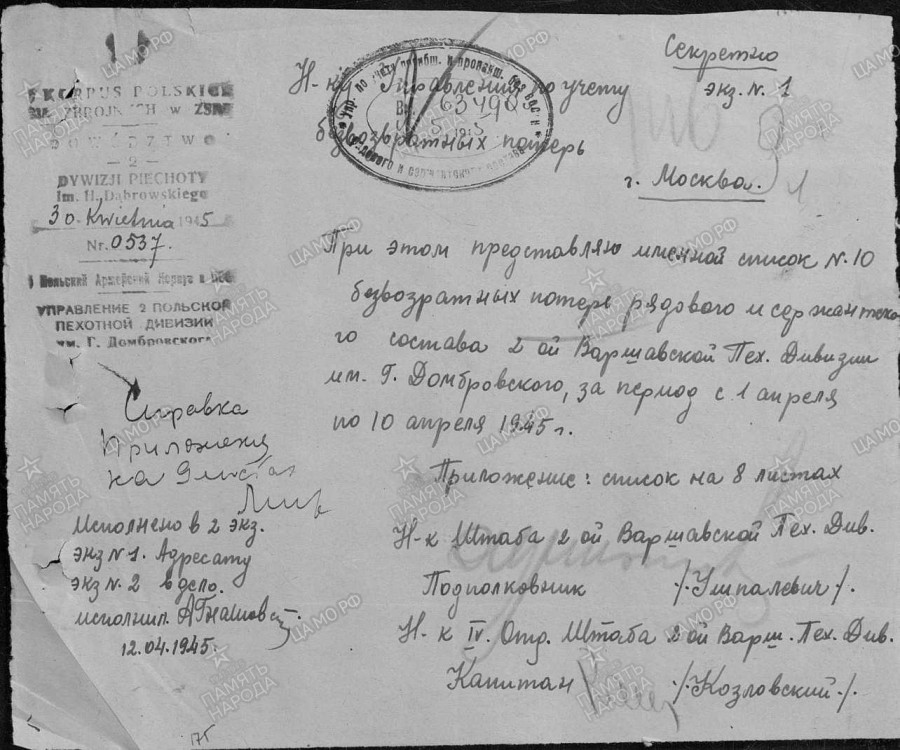 KORPUS POLSKICH
SIŁ ZBROJNYCH w ZSRR
DOWÓDZTWO
— 2 —
DYWIZJI PIECHOTY
Im. H. Dąbrowskiego
30 Kwietnia 1945
Nr. 0537.
Польский Армейский Корпус в СССР
УПРАВЛЕНИЕ 2 ПОЛЬСКОЙ
ПЕХОТНОЙ ДИВИЗИИ
им. Г. Домбровского
Секретно
экз. N. 1
Н-ку Управления по учету
безвозвратных потерь
г. Москва.
Упр. по учету погибш. и пропавш. без вести
рядового и сержантского состава
Вх. 63490
1945
При этом представляю именной список N. 10
безвозратных потерь рядового и сержантско
го состава 2 ой Варшавской Пех. Дивизии
им. Г. Домбровского, за период с 1 апреля
по 10 апреля 1945 г.
Приложение: список на 8 листах
Н-к Штаба 2 ой Варшавской Пех. Див.
Подполковник /. Ушпалевич /.
Н-к IV. Отд. Штаба 2 ой Варш. Пех. Див.
Капитан /. Козловский /.
Справка
Приложение
на 9 листах
Исполнено в 2 экз.
экз N 1. Адресату
экз N. 2 в дело.
исполнил.
12.04.1945.
175
ПАМЯТЬ
НАРОДА
ЦАМО.РФ